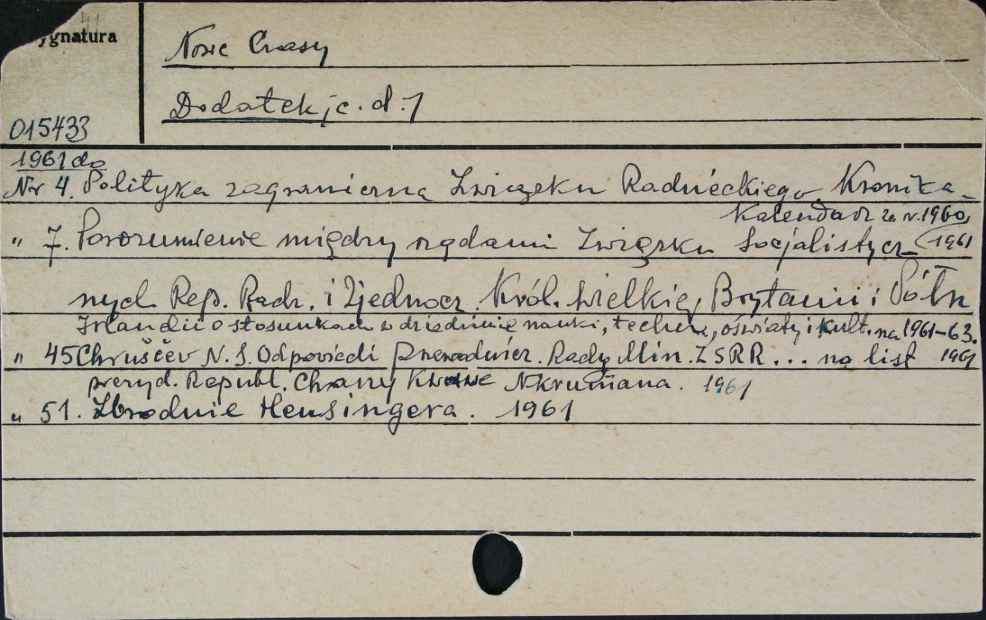 Sygnatura
Nowe Czasy
Dodatek, c. d. 1
015433
1961 do
Nr 4. Polityka zagraniczna Związku Radzieckiego. Kronika-
Kalendarz za r. 1960, 1961
" 7. Porozumienie między rządami Związku Socjalistycz
nych Rep. Radz. i Zjednocz. Król. Wielkiej Brytanii i Półn
Irlandii o stosunkach w dziedzinie nauki, techn., oświaty i kult. na 1961-63.
" 45 Chruščev N. S. Odpowiedi Przewodnicz. Rady Min. ZSRR ... na list 1961
prezyd. Republ. Ghany Kwame Nkrumana. 1961
" 51. Zbrodnie Heusingera. 1961